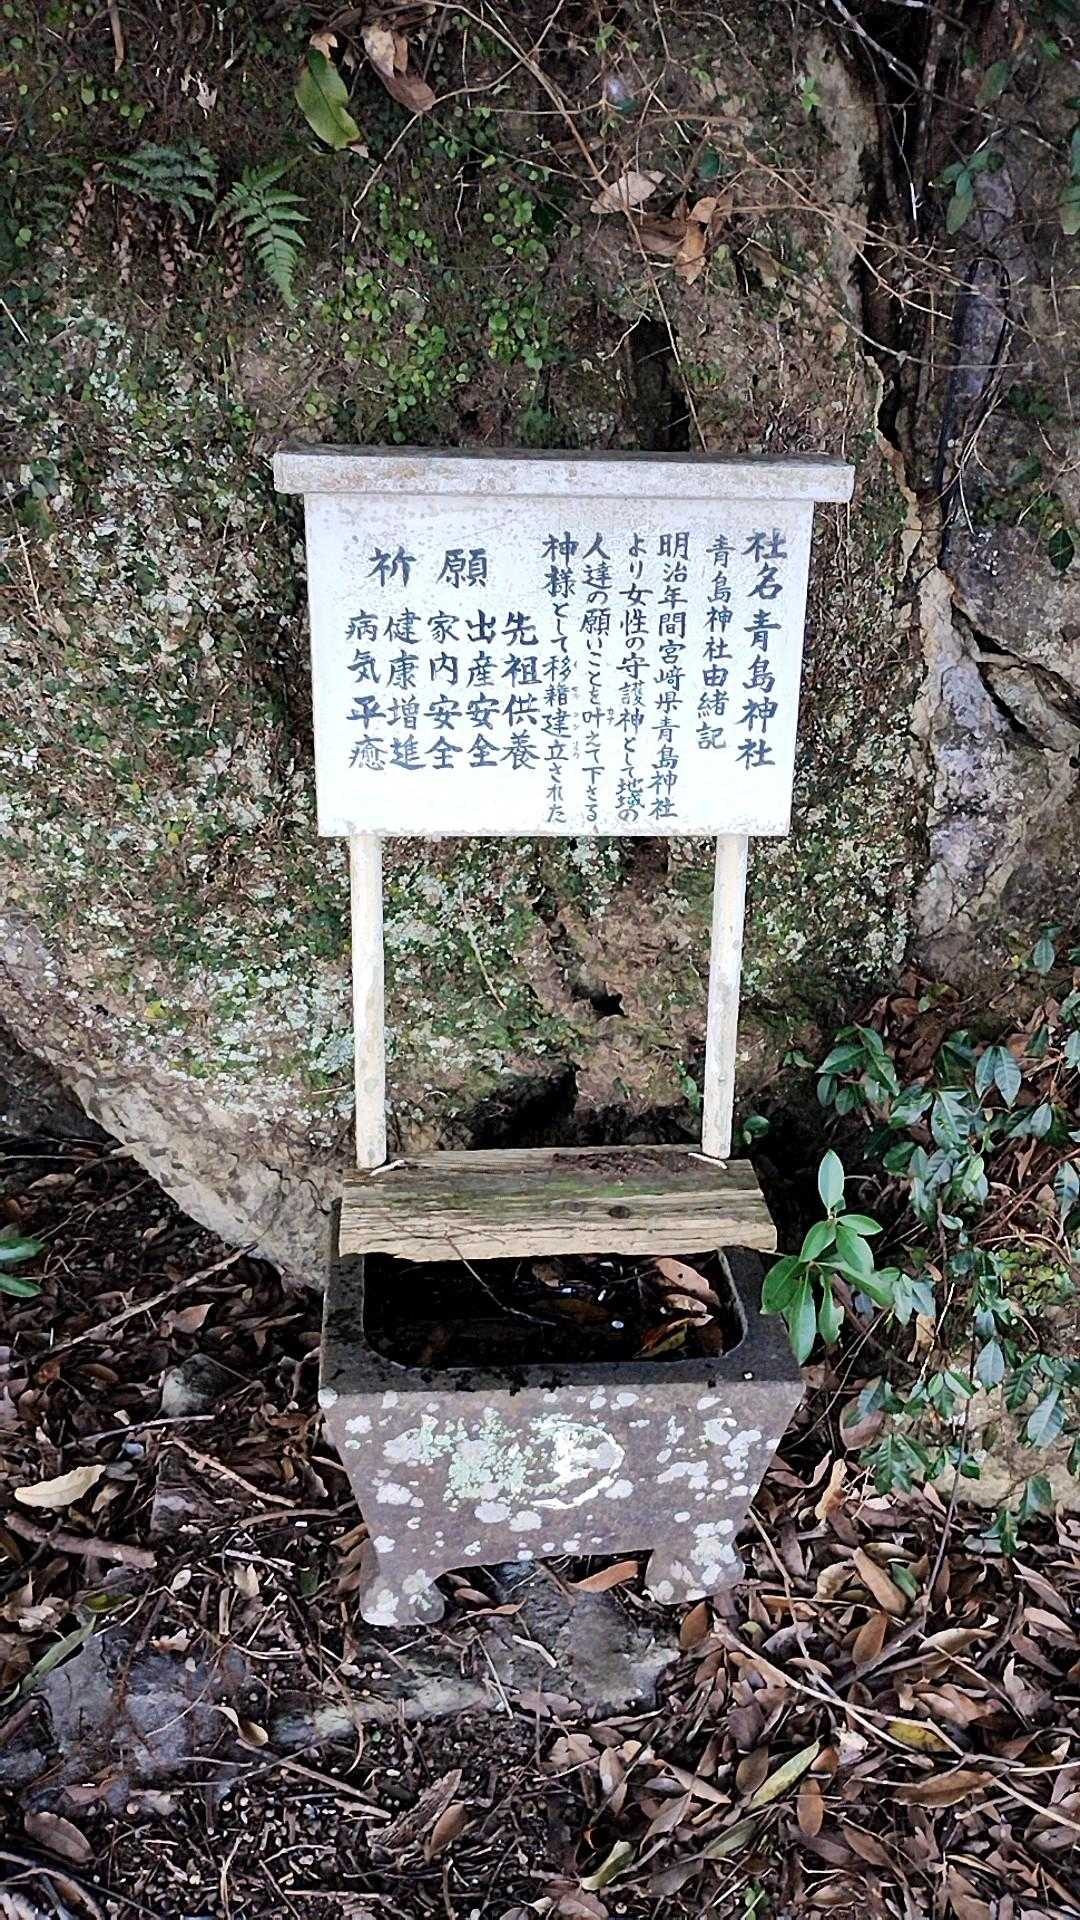 社名 青島神社
青島神社由緒記
明治年間宮﨑県青島神社
より女性の守護神として地域の
人達の願いことを叶えて下さる
神様として移籍建立された
祈願
先祖供養
出産安全
家内安全
健康増進
病気平癒